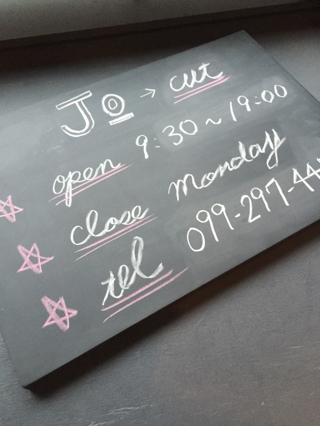 Jo → cut
open 9:30~19:00
close Monday
tel 099-297-44